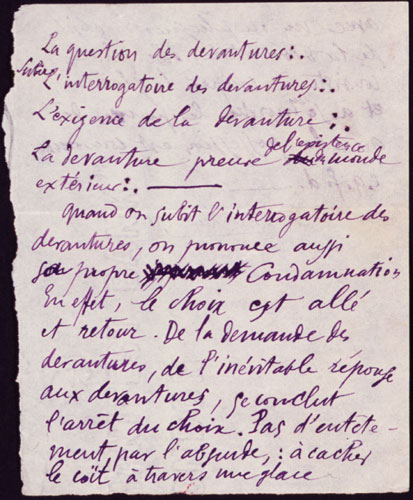 La question des devantures :.
Subir L'interrogatoire des devantures :.
L'exigence de la devanture :.
La devanture preuve de l'existence du monde
extérieur :.
quand on subit l'interrogatoire des
devantures, on prononce aussi
sa propre Condamnation
En effet, le choix est allé
et retour. De la demande des
devantures, de l'inévitable réponse
aux devantures, se conclut
l'arrêt du choix. Pas d'entete-
ment, par l'absurde, : à cacher
le coït à travers une glace